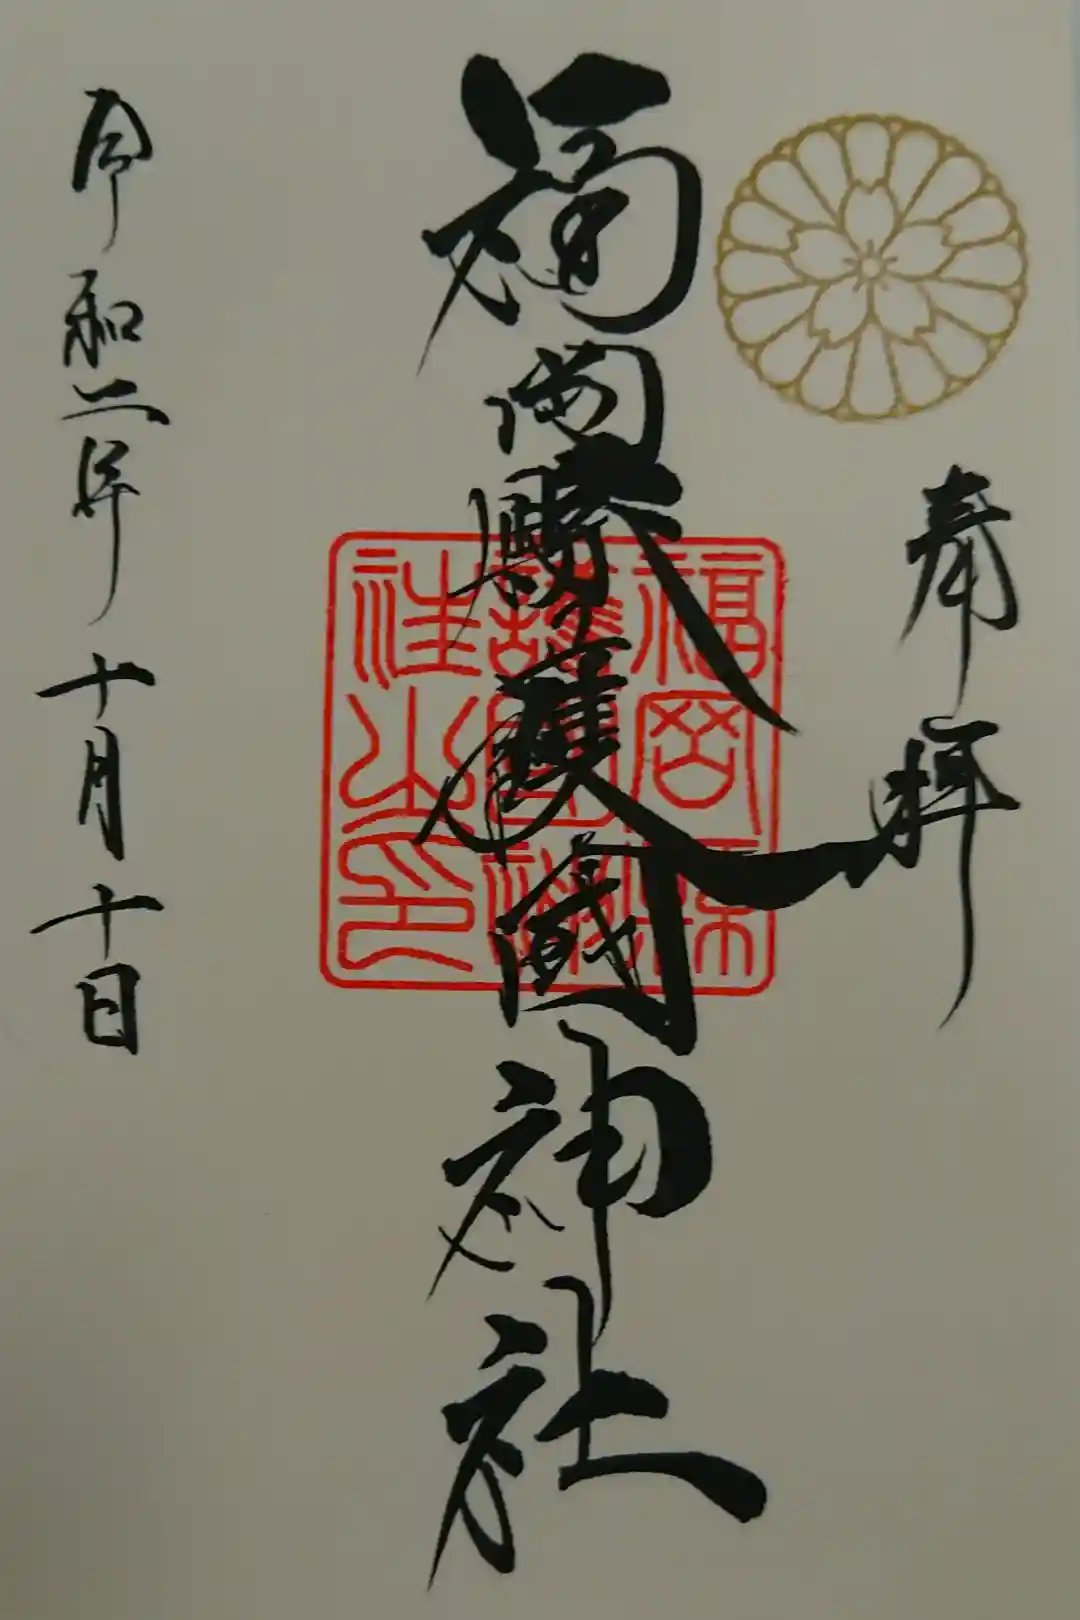 奉拝
福岡縣護國神社
福岡縣
護國神
社之印
令和二年十月十日